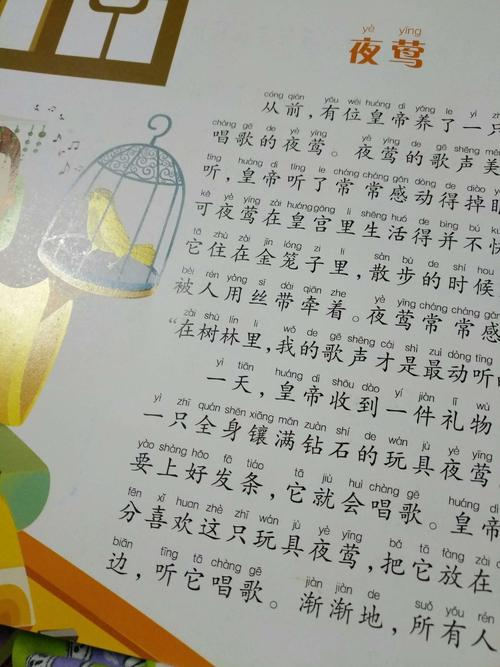 yè yīng
夜莺
cóng qián yǒu wèi huáng dì yǎng le yì zhī
从前，有位皇帝养了一只
chàng gē de yè yīng yè yīng de gē shēng měi
唱歌的夜莺。夜莺的歌声美
tīng huáng dì tīng le cháng cháng gǎn dòng de diào
听，皇帝听了常常感动得掉眼
kě yè yīng zài huáng gōng lǐ shēng huó de bìng bú kuài
可夜莺在皇宫里生活得并不快
tā zhù zài jīn lóng zi lǐ sàn bù de shí hou
它住在金笼子里，散步的时候
bèi rén yòng sī dài qiān zhe yè yīng cháng cháng gǎn
被人用丝带牵着。夜莺常常感
zài shù lín lǐ wǒ de gē shēng cái shì zuì dòng tīng
“在树林里，我的歌声才是最动听的
yì tiān huáng dì shōu dào yí jiàn lǐ wù
一天，皇帝收到一件礼物
yì zhī quán shēn xiāng mǎn zuàn shí de wán jù yè yīng
一只全身镶满钻石的玩具夜莺
yào shàng hǎo fā tiáo tā jiù huì chàng gē
要上好发条，它就会唱歌。皇帝
fēn xǐ huan zhè zhī wán jù yè yīng bǎ tā fàng zài
分喜欢这只玩具夜莺，把它放在
biān tīng tā chàng gē jiàn jiàn de suǒ yǒu rén
边，听它唱歌。渐渐地，所有人